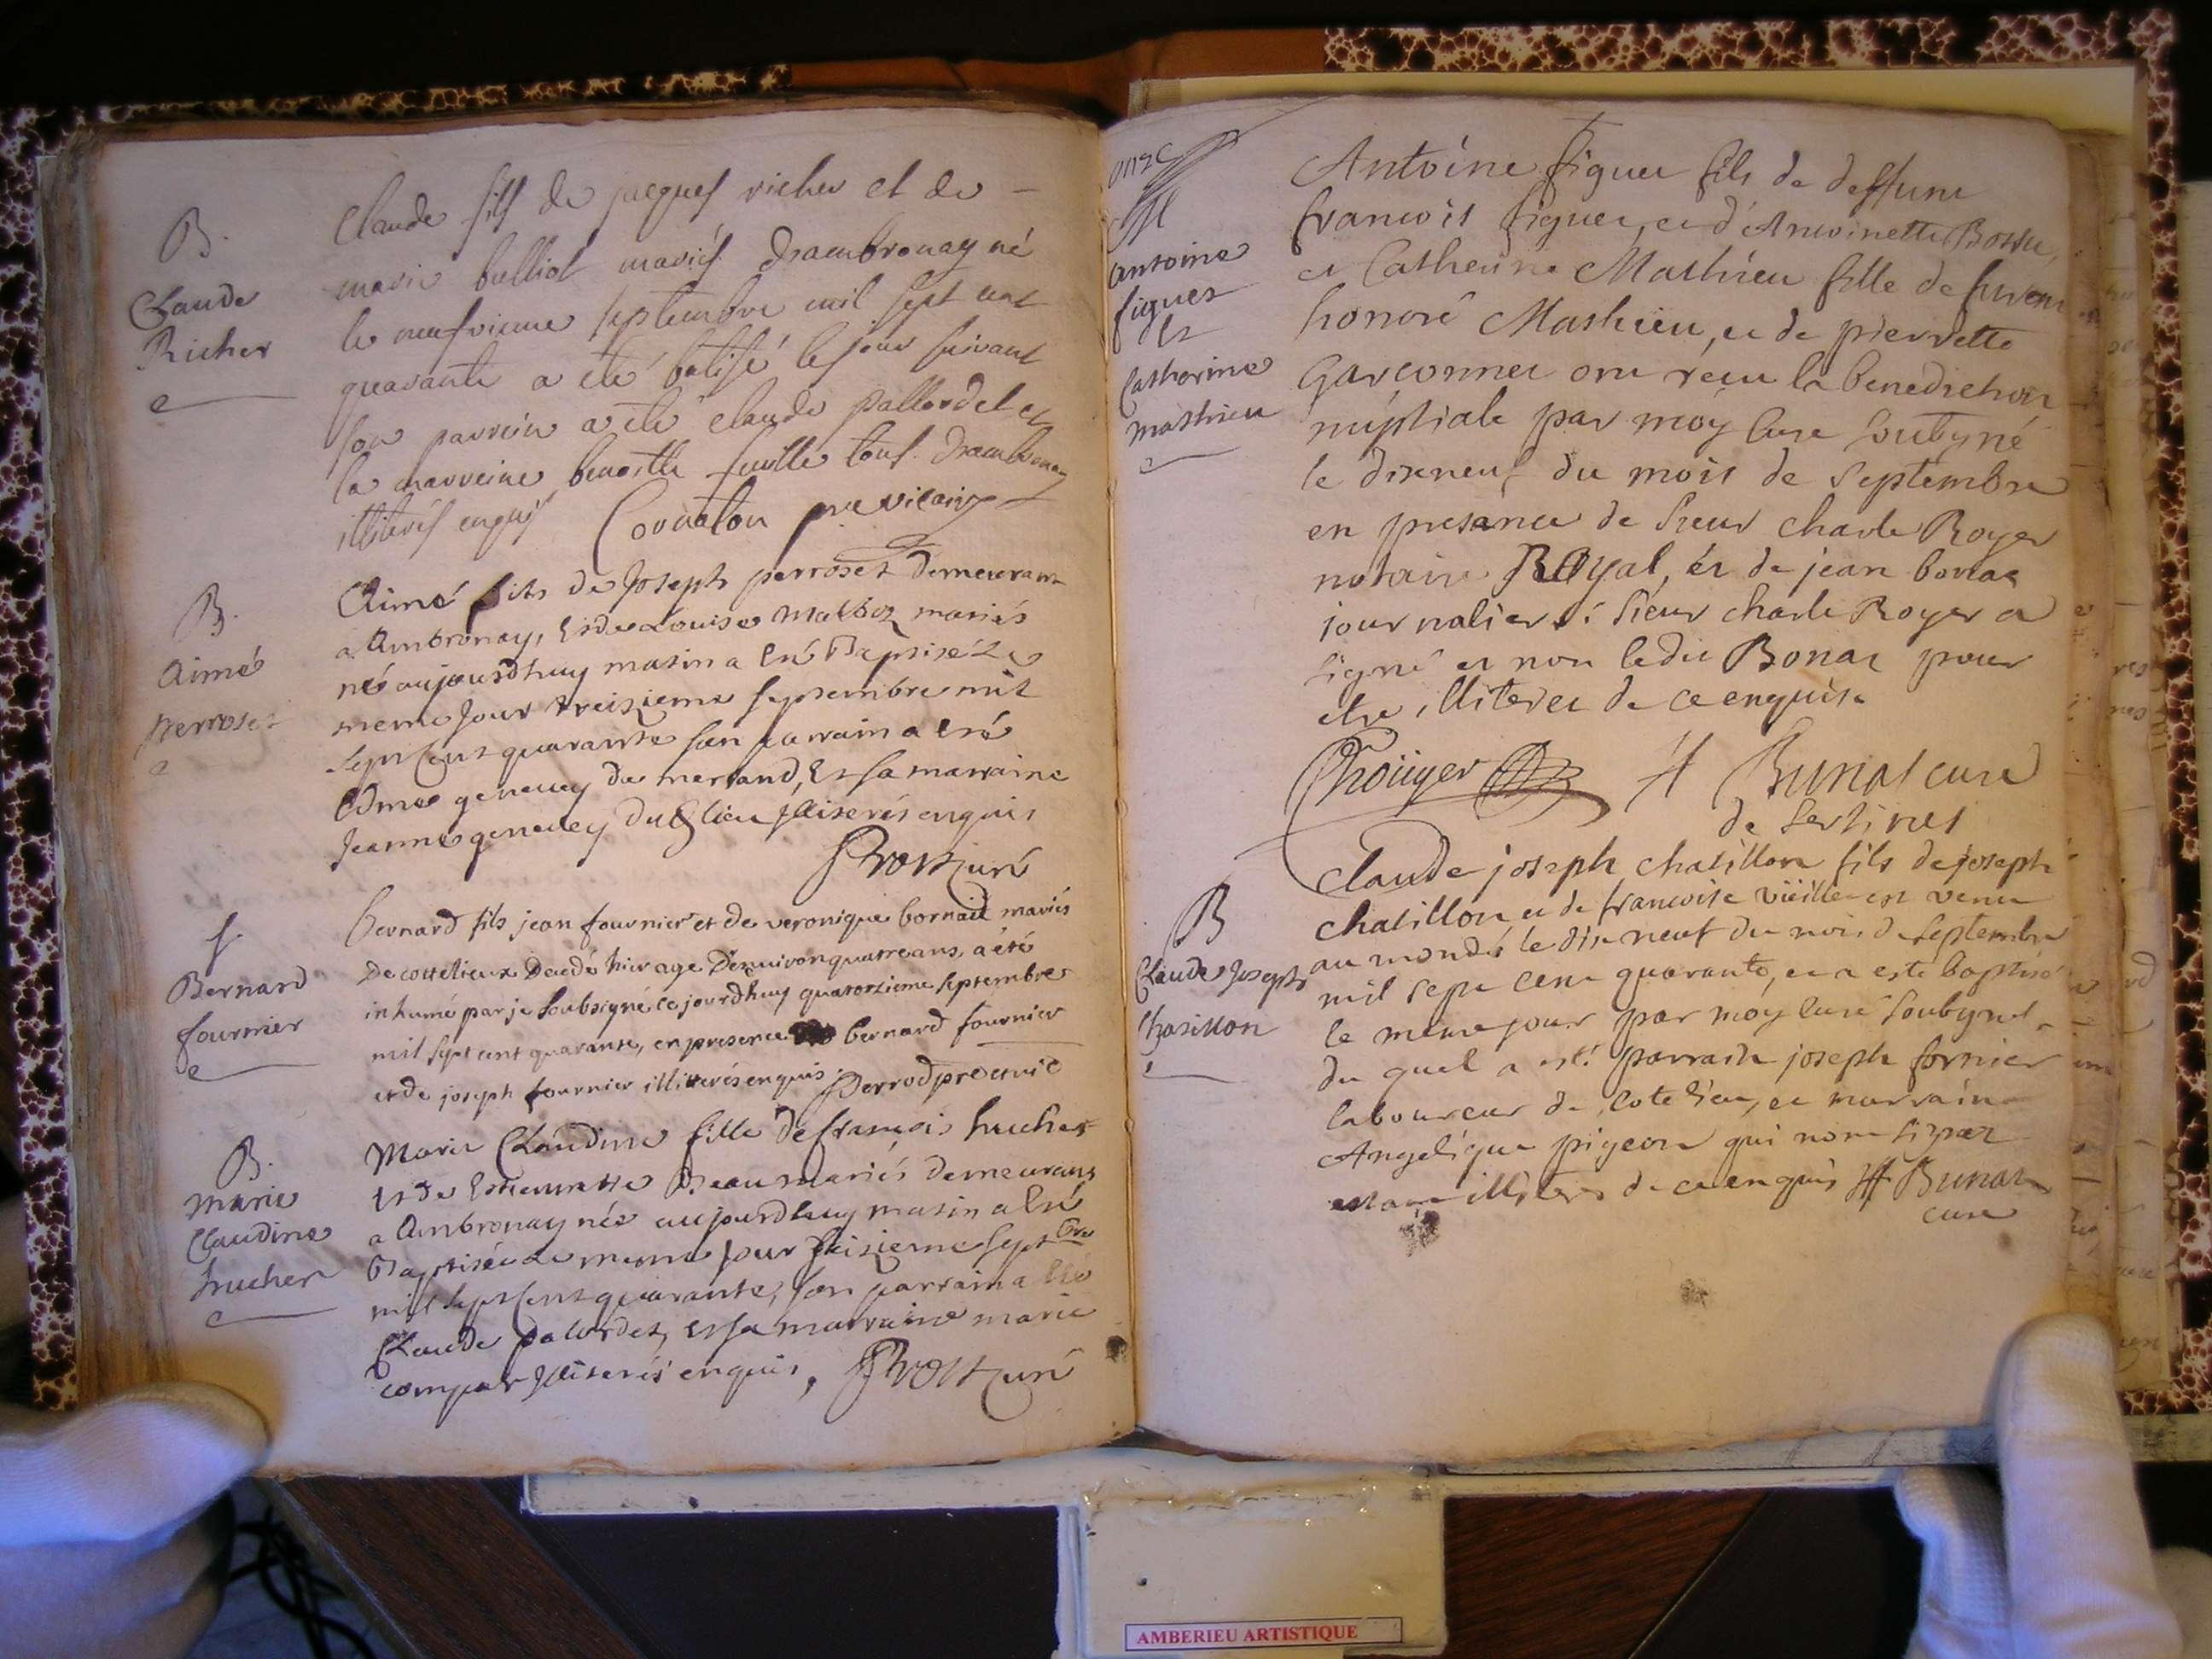 B.
Claude
Richer
Claude fils de jacques richer et de
marie bulliot mariés d'ambronay né
le neufvieme septembre mil sept cent
quarante a eté batisé le jour suivant
son parrein a eté claude pallordet et
la marreine benoitte tous d'ambronay
illiterés enquis Cornaton pre vicaire
B.
Aimé
perroset
Aimé fils de Joseph perroset demeurant
a Ambronay, Et de Louise malboz mariés
né aujourdhuy matin a Eté Baptisé Le
meme Jour treizieme septembre mil
sept Cent quarante son parrain a Eté
Edme genevey de merland, Et sa marraine
Jeanne genevey dud lieu Jlliterés enquis
Prost Curé
f.
Bernard
fournier
bernard fils jean fournier et de veronique bornaid mariés
de cottelieux decedé hier age d'environ quatre ans, a été
inhumé par je soubsigné cejourdhuy quatorzieme septembre
mil sept cent quarante, en presence bernard fournier
et de joseph fournier illitterés enquis. Perrod pre et vic
B.
marie
Claudine
hucher
Marie Claudine fille de françois hucher
Et de Estiennette Beau mariés demeurans
a Ambronay née aujourdhuy matin a Eté
Baptisée Le meme jour seizieme septbre
mil sept Cent quarante, son parrain a Eté
Claude palordet, Et sa marraine marie
compar Jlliterés enquis, Prost Curé
onze
M
antoine
figuet
Et
Catherine
mathieu
Antoine figuet fils de deffunt
francois figuet, et d'Antoinette Bossu,
et Catherine Mathieu fille de furent
honoré Mathieu, et de pierrette
Garconnet ont reçu la benediction
nuptiale par moy curé soubsné
le dixneuf du mois de septembre
en presence de sieur charle Royer
notaire Royal, et de jean bonaz
journalier. sieur charle Royer a
signé et non ledit Bonaz pour
etre illiteret de ce enquis
Rouyer H Bunat curé
de
B
Claude Joseph
Chatillon
Claude joseph chatillon fils de joseph
chatillon et de francoise vieille est venu
au monde le dix neuf du mois de septembre
mil sept cent quarante, et a esté baptisé
le meme jour par moy curé soubsné
du quel a esté parrain joseph fornier
laboureur de cotelieu, et marraine
Angelique pigeon qui nont signez
estant illiteres de ce enquis H Bunat
curé
AMBERIEU ARTISTIQUE